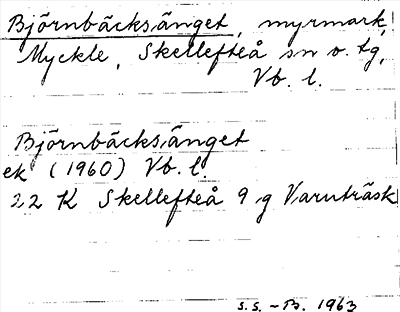 Björnbäcksänget, myrmark,
Myckle, Skellefteå sn o. tg,
Vb. l.
Björnbäcksänget
ek (1960) Vb. l.
2,2 K Skellefteå 9 g Varuträsk
s.s. - B. 1963